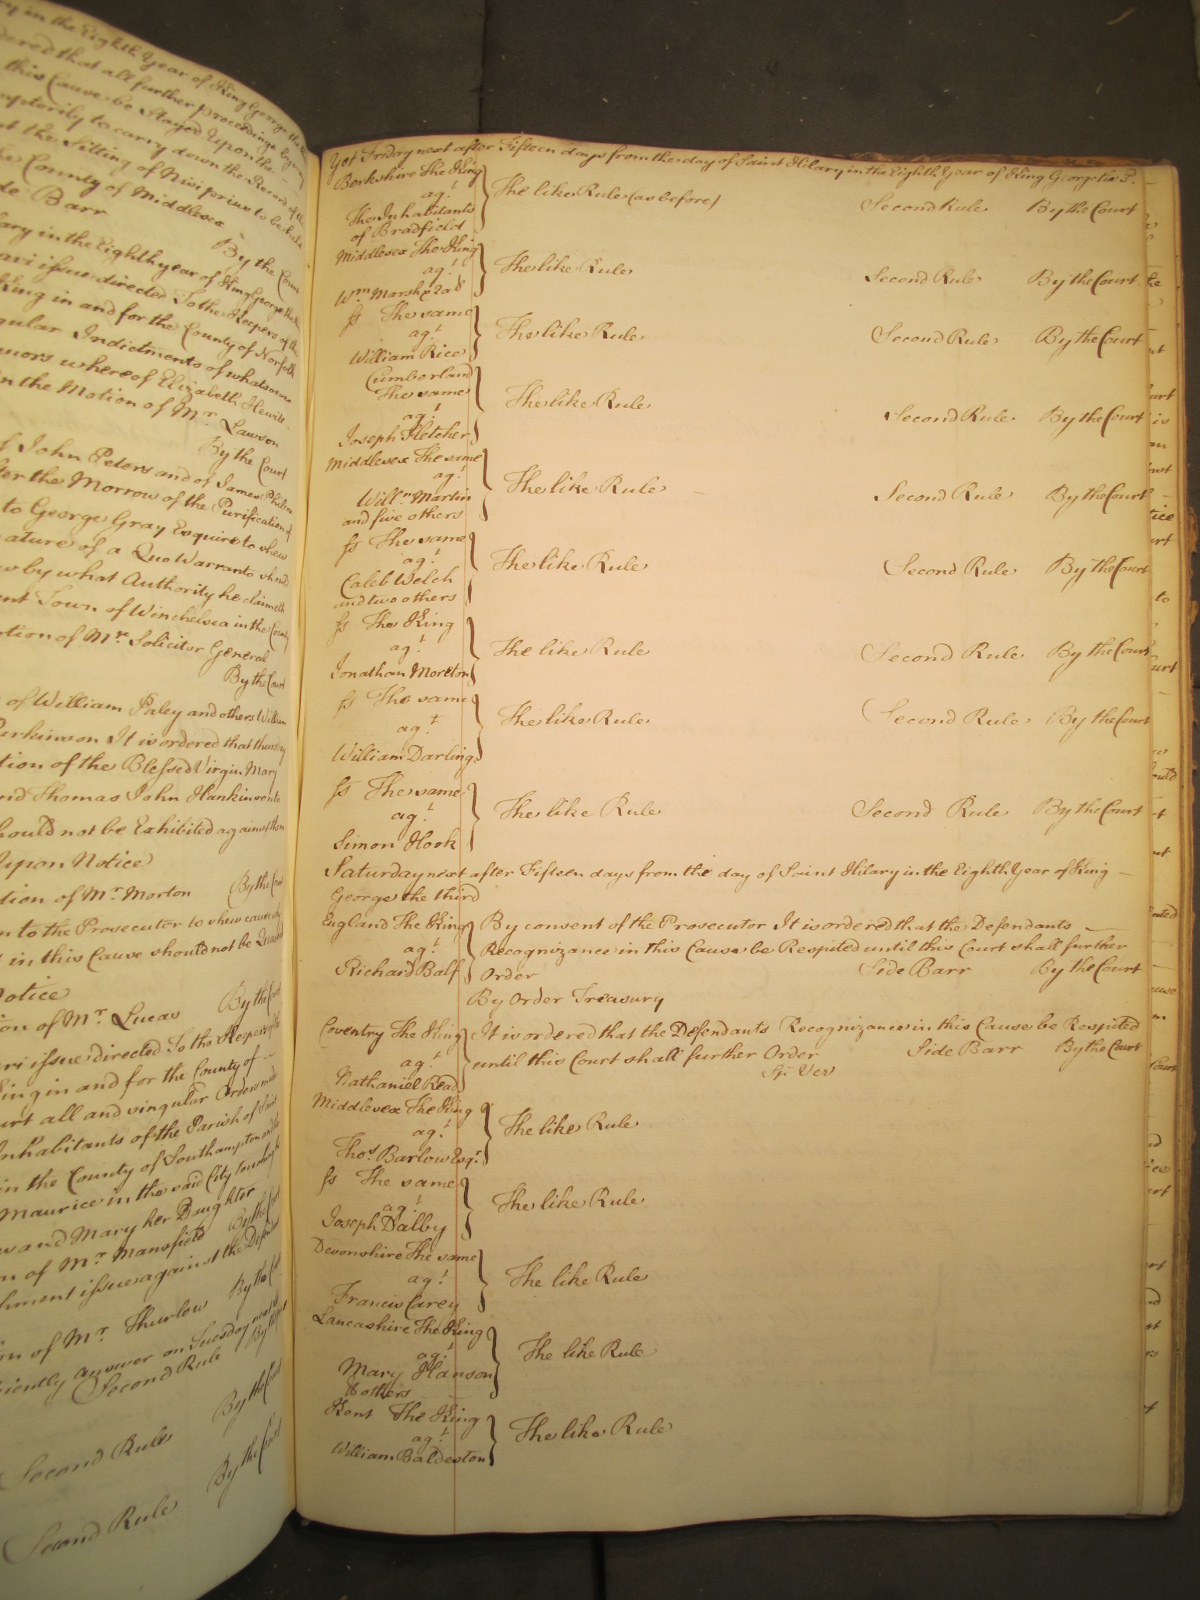 ry in the Eighth Year of King George the
dered that all further proceedings
this Cause be Stayed Upon the
mptorily to carry down the Record of the
at the Sitting of Nisi prius to be held
he County of Middlesex
de Barr By the Court
ary in the Eighth year of King George the
ari issue directed To the Keepers of the
King in and for the County of Norfolk
gular Indictments of whatsoever
whereof Elizabeth Hewitt
n the Motion of Mr. Lawson
By the Court
f John Peters and of James
ter the Morrow of the Purification of
to George Gray Esquire to shew
ature of a Quo Warranto should
w by what Authority he claimeth
ent Town of Winchelsea in the County
otion of Mr. Solicitor General
By the Court
of William Paley and others William
Parkinson It is ordered that thursday
tion of the Blessed Virgin Mary
nd Thomas John Hankinson to
hould not be Exhibited against them
Upon Notice
tion of Mr. Morton By the Court
n to the Prosecutor to shew cause why
t in this Cause should not be Quashed
Notice
ion of Mr. Lucas By the Court
ri issue directed To the Keepers of the
King in and for the County of
urt all and singular Orders made
nhabitants of the Parish of Saint
in the County of Southampton and the
Maurice in the said City touching the
w and Mary her Daughter
n of Mr. Mansfield By the Court
hment issue against the Defendant
on of Mr. Thurlow By the Court
iciently answer on Tuesday next
Second Rule By the Court
Second Rule By the Court
Second Rule By the Court
Yet Friday next after Fifteen days from the day of Saint Hilary in the Eighth Year of King George the 3d.
Berkshire The King
agt.
The Inhabitants
of Bradfield
The like Rule (as before) Second Rule By the Court
Middlesex The King
agt.
Wm. Marshall
The like Rule Second Rule By the Court
ss The same
agt.
William Rice
The like Rule Second Rule By the Court
Cumberland
The same
agt.
Joseph Fletcher
The like Rule Second Rule By the Court
Middlesex The same
agt.
Willm. Martin
and five others
The like Rule Second Rule By the Court
ss The same
agt.
Caleb Welch
and two others
The like Rule Second Rule By the Court
ss The King
agt.
Jonathan Moreton
The like Rule Second Rule By the Court
ss The same
agt.
William Darling
The like Rule Second Rule By the Court
ss The same
agt.
Simon Hook
The like Rule Second Rule By the Court
Saturday next after Fifteen days from the day of Saint Hilary in the Eighth Year of King
George the third
England The King
agt.
Richard Balf
By consent of the Prosecutor It is ordered that the Defendants
Recognizance in this Cause be Respited until this Court shall further
Order Side Barr By the Court
By Order Treasury
Coventry The King
agt.
Nathaniel Read
It is ordered that the Defendants Recognizance in this Cause be Respited
until this Court shall further Order Side Barr By the Court
Sp. Ver
Middlesex The King
agt.
Thos. Barlow Esqr.
The like Rule
ss The same
agt.
Joseph Dalby
The like Rule
Devonshire The same
agt.
Francis Carey
The like Rule
Lancashire The King
agt.
Mary Hanson
& others
The like Rule
Kent The King
agt.
William Balderton
The like Rule